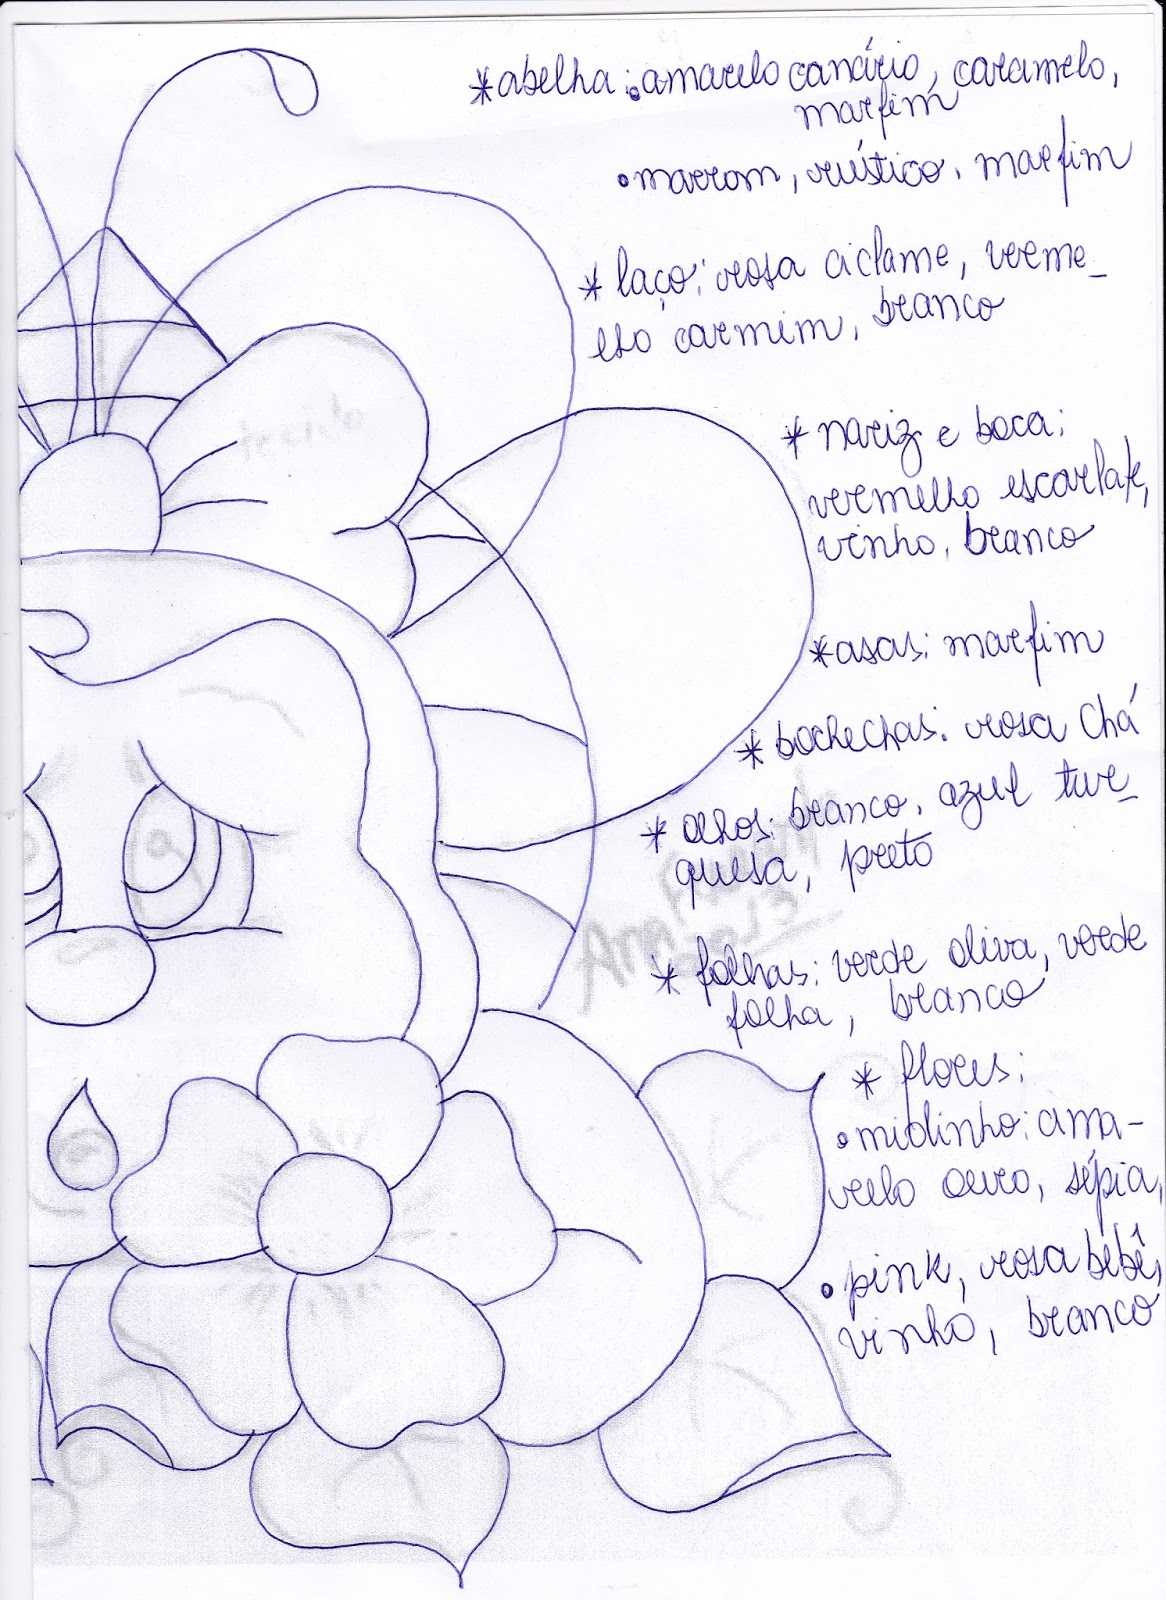 *abelha: •amarelo canário, caramelo,
marfim
•marrom, rústico, marfim
* laço: rosa ciclame, verme-
lho carmim, branco
tecido
* nariz e boca:
vermelho escarlate,
vinho, branco
*asas: marfim
* bochechas: rosa chá
* olhos: branco, azul tur-
quesa, preto
* folhas: verde oliva, verde
folha, branco
* flores:
•miolinho: ama-
relo ouro, sépia,
•pink, rosa bebê,
vinho, branco